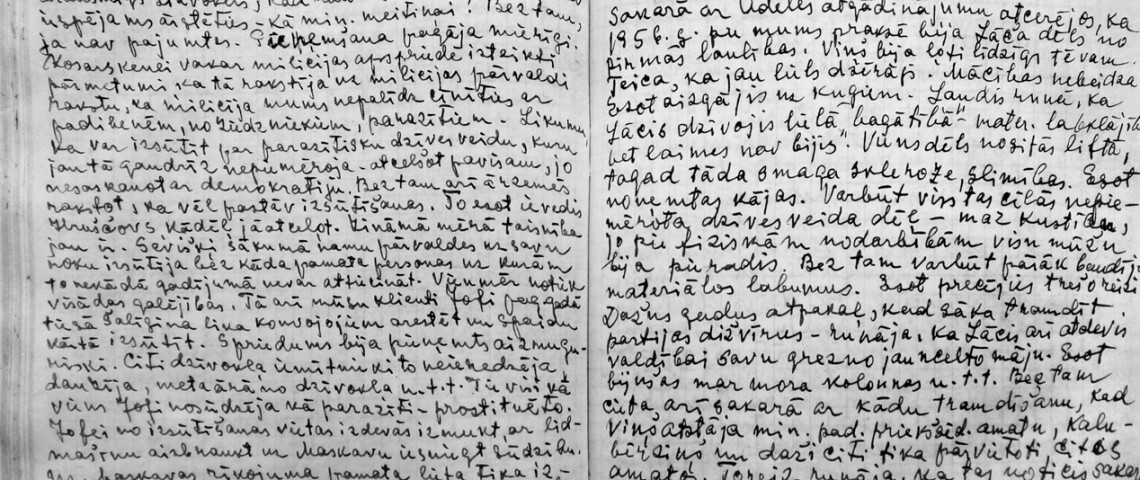 izpējams aizstāties - kā min. meitinai? Bez tam,
ja nav pajumtes. Pieņemšana pagāja mierīgi.
Kosarskenei vakar milicijas apspriedē izteikti
pārmetumi ka tā rakstīja uz milicijas pārvaldi
rakstu, ka milicija mums nepalīdz cīnīties ar
padibenēm, no žūdzniekiem, parazītiem. Likumu,
ka var izsūtīt par parazītisku dzīves veidu, kuru
jau tā gandrīz nepiemēroja - atceļot pavisam, jo
nesaskanot ar demokrātiju. Bez tam arī ārzemēs
rakstot, ka vēl pastāv izsūtīšanas. To esot ievedis
Hruščovs kādēļ jāatceļot. Zināmā mērā taisnība
jau ir. Sevišķi sākumā namu pārvaldes uz savu
roku izsūtīja bez kāda pamata personas uz kurām
to nekādā gadījumā nevar attiecināt. Vienmēr notiek
visādas galējības. Tā arī mūsu klienti Jofi pag. gadā
tiesā Šaligina lika konvojojām arestēt un spaidu
kārtā izsūtīt. Spriedums bija pieņemts aizmugu-
riski. Citi dzīvokļa iemītnieki to neieredzēja
dauzīja, meta ārā no dzīvokļa u.t.t. Tie visi kā
viens Jofi nosūdzēja kā parazīti - prostituēto.
Jofei no izsūtīšanas vietas izdevās izmukt, ar lid-
mašīnu aizbraukt uz Maskavu iesniegt sūdzību.
Maskavas rīkojuma pamata lieta tika iz-
Sakarā ar Ūdeles atgādinājumu atcerējos, ka
1956. g. pie mums praksē bija Lāča dēls no
pirmās laulības. Viņš bija ļoti līdzīgs tēvam.
Teica, ka jau liels dzērājs. Mācības nebeidza
Esot aizgājis uz kuģiem. Ļaudis runā, ka
Lācis dzīvojis lielā "bagātībā" mater. labklājīb
bet laimes nav bijis. Viens dēls nosities liftā,
tagad tāda smaga skleroze, slimības. Esot
noņemtas kājas. Varbūt viss tas cēlās nepie-
mērota dzīves veida dēļ - maz kustības,
jo pie fiziskām nodarbībām visu mūžu
bija pieradis. Bez tam varbūt pārāk baudīja
materiālos labumus. Esot precējies trešo reizi
Dažus gadus atpakaļ, kad sāka tramdīt
partijas dižvīrus - runāja, ka Lācis arī atdevis
valdībai savu grezno jauncelto māju. Esot
bijušas marmora kolonnas u.t.t. Bez tam
cieta arī sakarā ar kādu tramdīšanu, kad
viņš atstāja min. pad. priekšsēd. amatu, Kaln-
bērziņš un daži citi tika pārvietoti citos
amatos. Toreiz runāja, ka tas noticis sakar